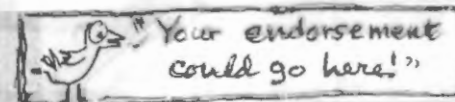 "Your endorsement
could go here!"